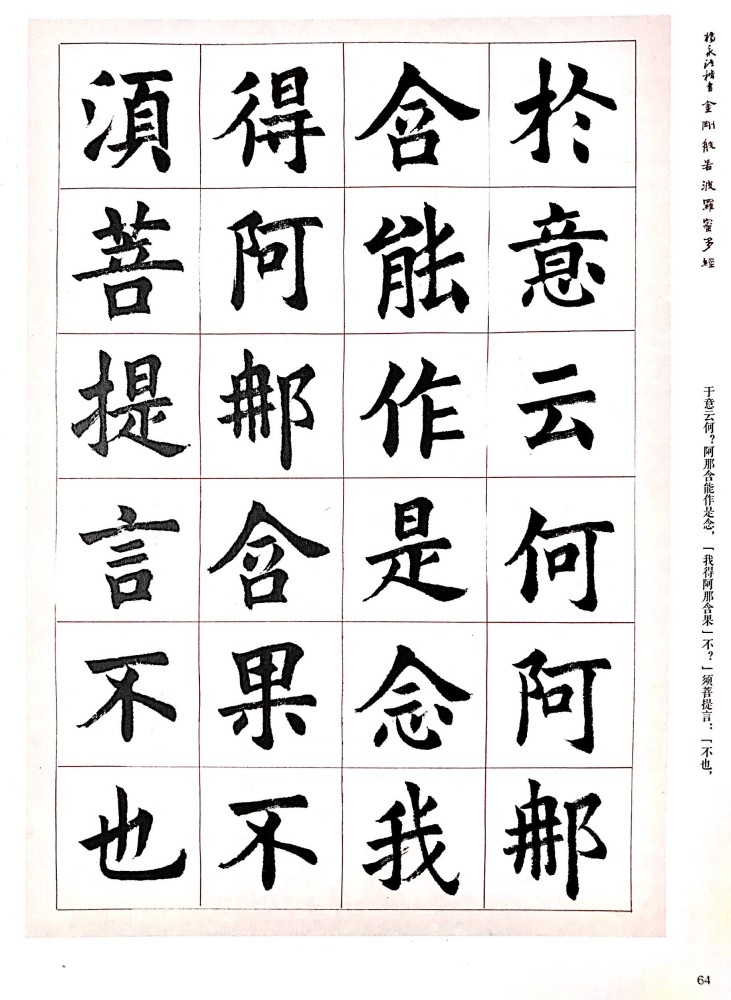 楊永沂楷書金剛般若波羅蜜多經
於意云何阿那
含能作是念我
得阿那含果不
須菩提言不也
于意云何？阿那含能作是念，「我得阿那含果」不？」须菩提言：「不也，
64